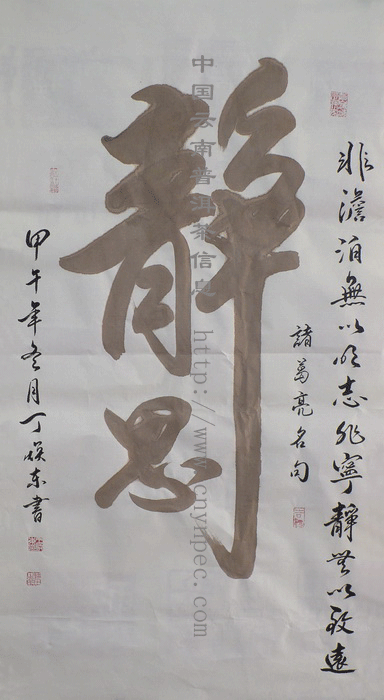 非澹泊無以明志非寧靜無以致遠
諸葛亮名句
靜思
甲午年冬月丁瑛東書
中国云南普洱茶信息 http://www.cnynpec.com